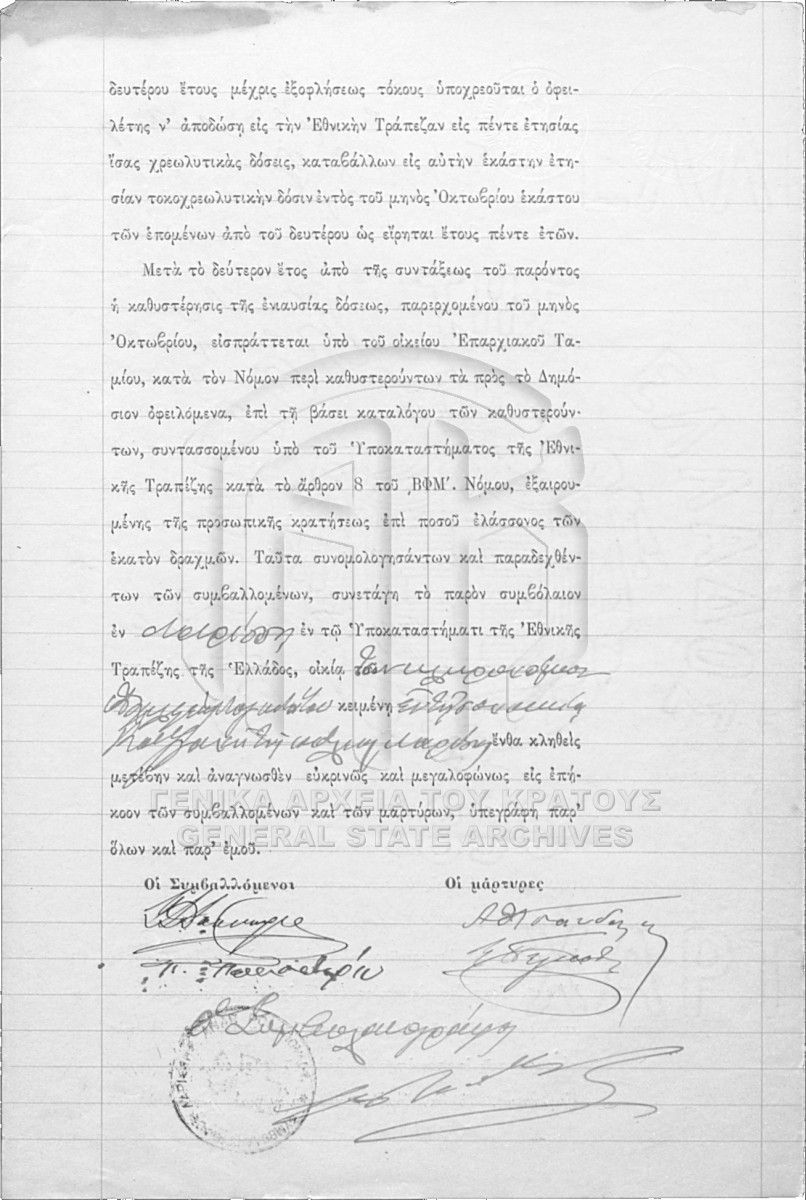 δευτέρου ἔτους μέχρις ἐξοφλήσεως τόκους ὑποχρεοῦται ὁ ὀφει-
λέτης ν' ἀποδώσῃ εἰς τὴν Ἐθνικὴν Τράπεζαν εἰς πέντε ἐτησίας
ἴσας χρεωλυτικὰς δόσεις, καταβάλλων εἰς αὐτὴν ἑκάστην ἐτη-
σίαν τοκοχρεωλυτικὴν δόσιν ἐντὸς τοῦ μηνὸς Ὀκτωβρίου ἑκάστου
τῶν ἑπομένων ἀπὸ τοῦ δευτέρου ὡς εἴρηται ἔτους πέντε ἐτῶν.
Μετὰ τὸ δεύτερον ἔτος ἀπὸ τῆς συντάξεως τοῦ παρόντος
ἡ καθυστέρησις τῆς ἐνιαυσίας δόσεως, παρερχομένου τοῦ μηνὸς
Ὀκτωβρίου, εἰσπράττεται ὑπὸ τοῦ οἰκείου Ἐπαρχιακοῦ Τα-
μίου, κατὰ τὸν Νόμον περὶ καθυστερούντων τὰ πρὸς τὸ Δημό-
σιον ὀφειλόμενα, ἐπὶ τῇ βάσει καταλόγου τῶν καθυστερούν-
των, συντασσομένου ὑπὸ τοῦ Ὑποκαταστήματος τῆς Ἐθνι-
κῆς Τραπέζης κατὰ τὸ ἄρθρον 8 τοῦ ͵ΒΦΜ'. Νόμου, ἐξαιρου-
μένης τῆς προσωπικῆς κρατήσεως ἐπὶ ποσοῦ ἐλάσσονος τῶν
ἑκατὸν δραχμῶν. Ταῦτα συνομολογησάντων καὶ παραδεχθέν-
των τῶν συμβαλλομένων, συνετάγη τὸ παρὸν συμβόλαιον
ἐν Λαρίσῃ ἐν τῷ Ὑποκαταστήματι τῆς Ἐθνικῆς
Τραπέζης τῆς Ἑλλάδος, οἰκίᾳ τῶν κληρονόμων
κειμένῃ
ἔνθα κληθεὶς
μετέβην καὶ ἀναγνωσθὲν εὐκρινῶς καὶ μεγαλοφώνως εἰς ἐπή-
κοον τῶν συμβαλλομένων καὶ τῶν μαρτύρων, ὑπεγράφη παρ'
ὅλων καὶ παρ' ἐμοῦ.
ΓΕΝΙΚΑ ΑΡΧΕΙΑ ΤΟΥ ΚΡΑΤΟΥΣ
GENERAL STATE ARCHIVES
Οἱ Συμβαλλόμενοι Οἱ μάρτυρες
Ὁ Συμβολαιογράφος